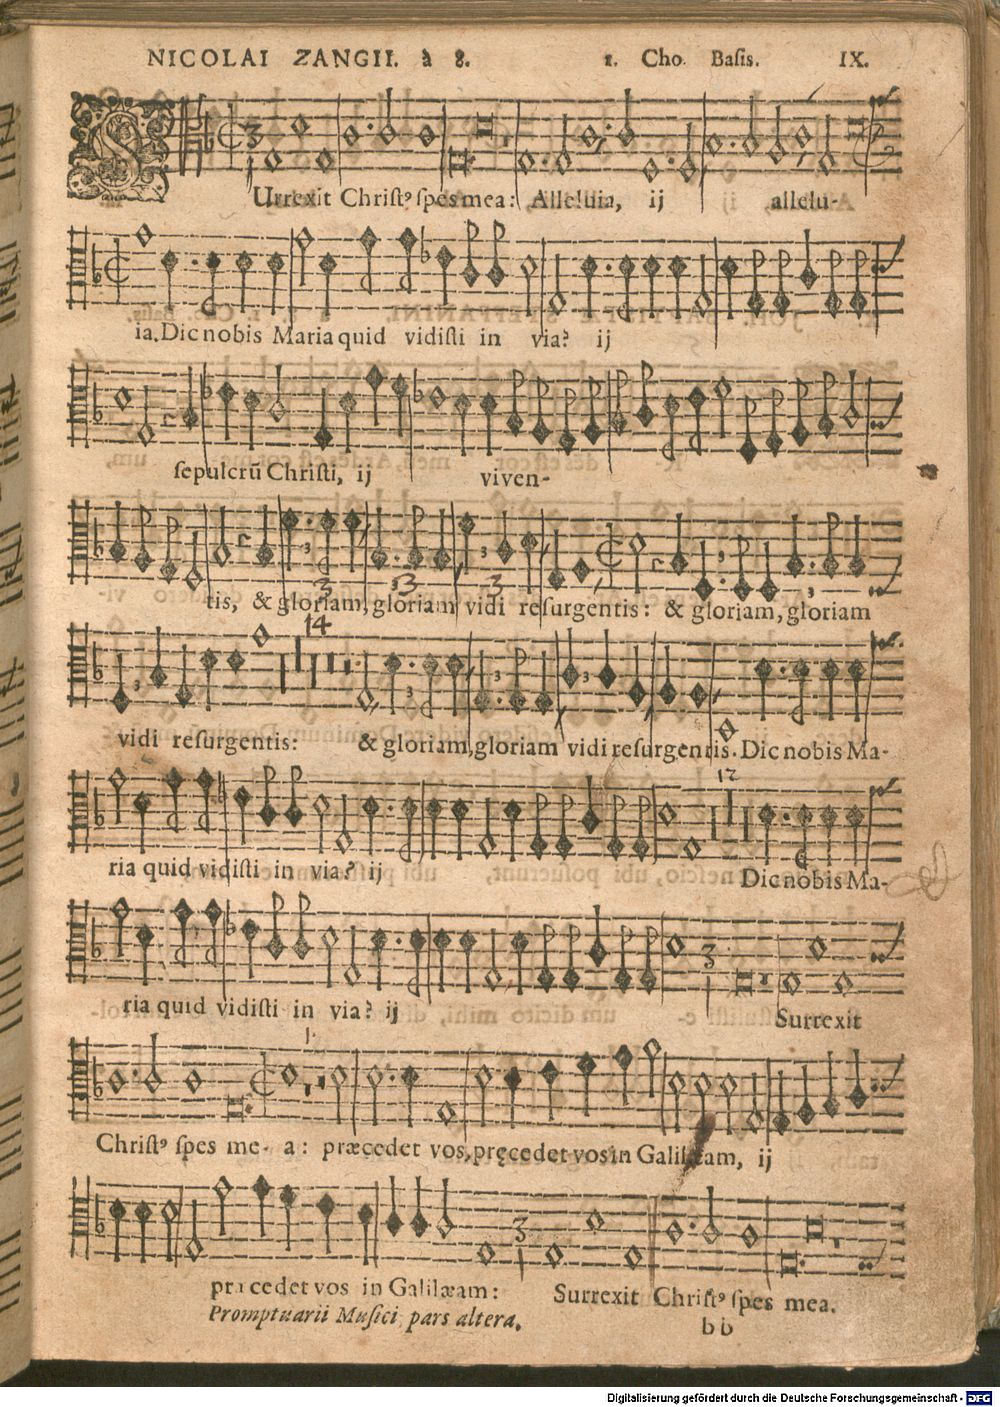 NICOLAI ZANGII. à 8. 1. Cho. Basis. IX.
SUrrexit Christꝰ spes mea: Alleluia, ij allelu-
ia. Dic nobis Maria quid vidisti in via? ij
sepulcrū Christi, ij viven-
3 3 3
tis, & gloriam, gloriam vidi resurgentis: & gloriam, gloriam
14
vidi resurgentis: & gloriam, gloriam vidi resurgentis. Dic nobis Ma-
12
ria quid vidisti in via? ij Dic nobis Ma-
ria quid vidisti in via? ij Surrexit
Christꝰ spes me- a: præcedet vos, pręcedet vos in Galilæam, ij
præcedet vos in Galilæam: Surrexit Christꝰ spes mea.
Promptuarii Musici pars altera. bb
Digitalisierung gefördert durch die Deutsche Forschungsgemeinschaft - DFG